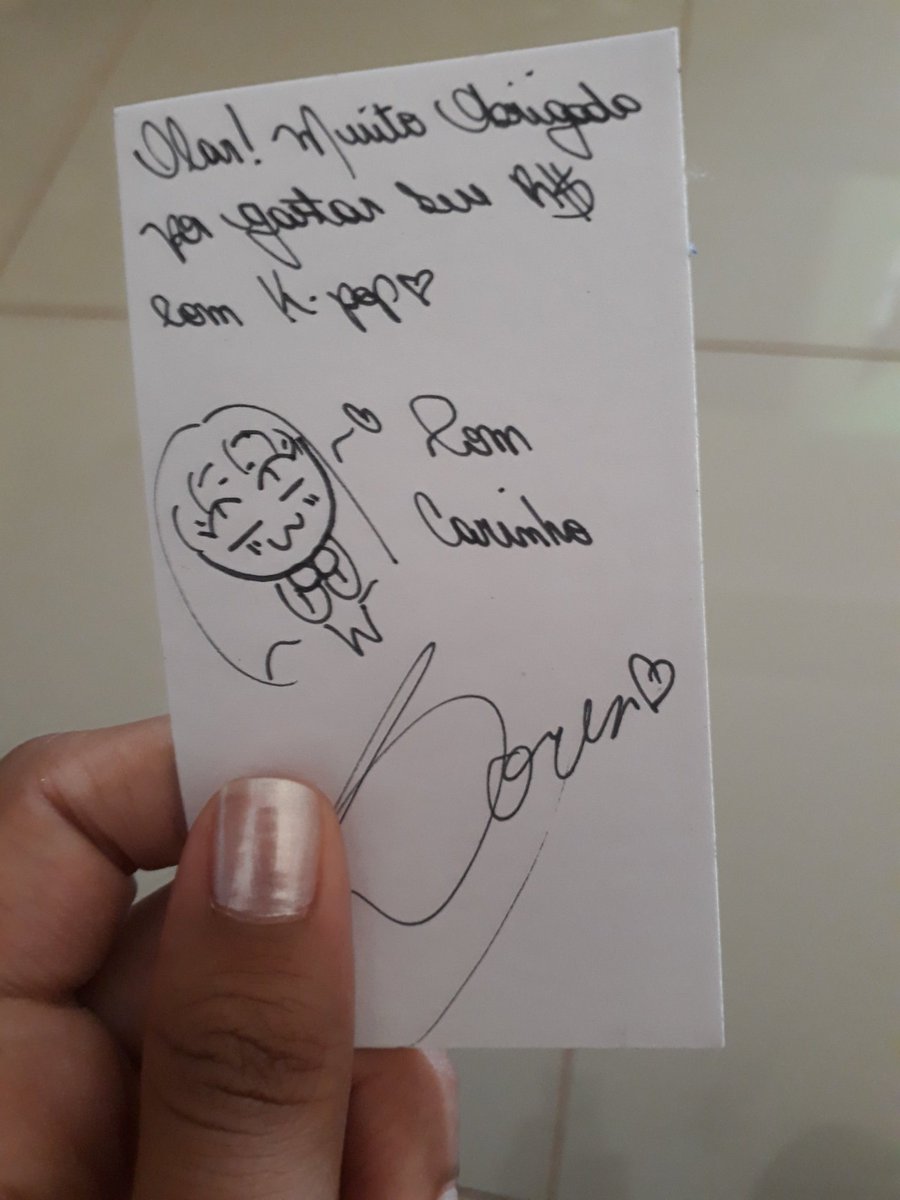 Olar! Muito Obrigada
por gastar seu R$
com K-pop♡
Com
Carinho